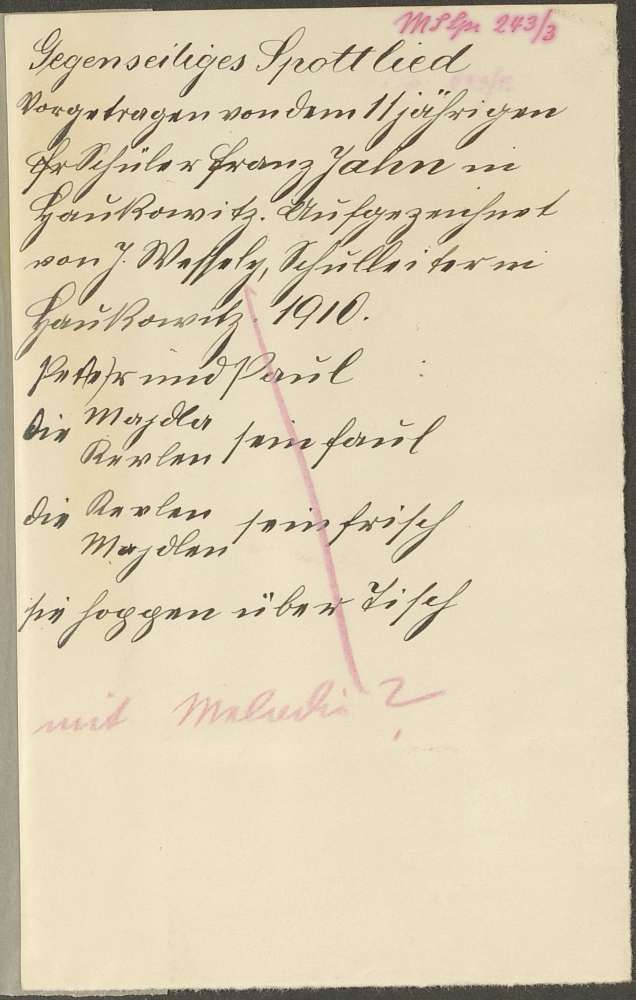 MS Gr 243/3
Gegenseitiges Spottlied
Vorgetragen von dem 11jährigen
Schüler Franz Jahn in
Haukowitz. Aufgezeichnet
von J. Wessely, Schulleiter in
Haukowitz. 1910.
Peter und Paul
die Majdla
Kerlen sein faul
die Kerlen
Majdlen sein frisch
sie hoppen über Tisch
mit Melodie?